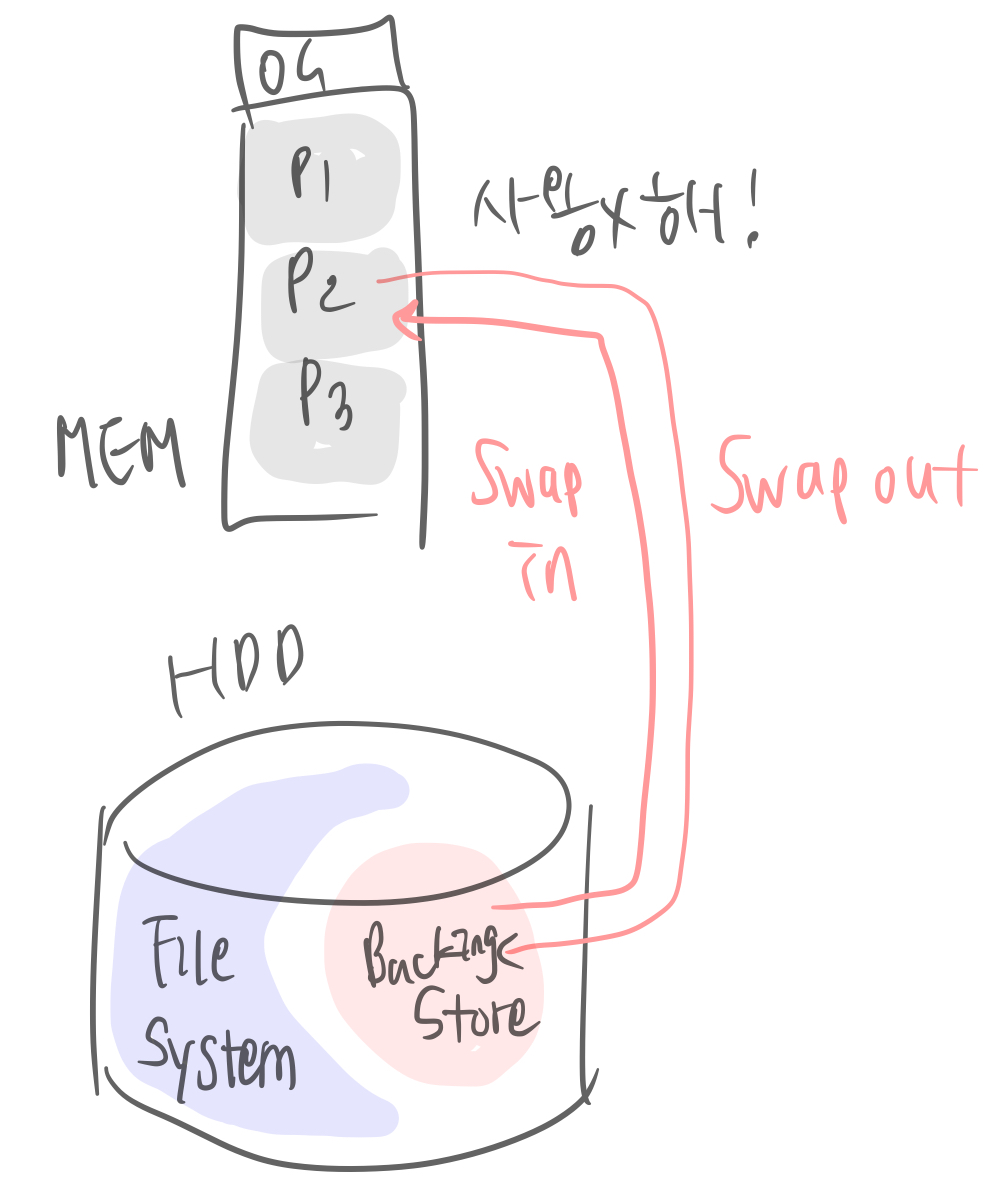 OS
P1
사용x 해!
P2
P3
MEM
Swap
in
Swap out
HDD
File
System
Backing
Store